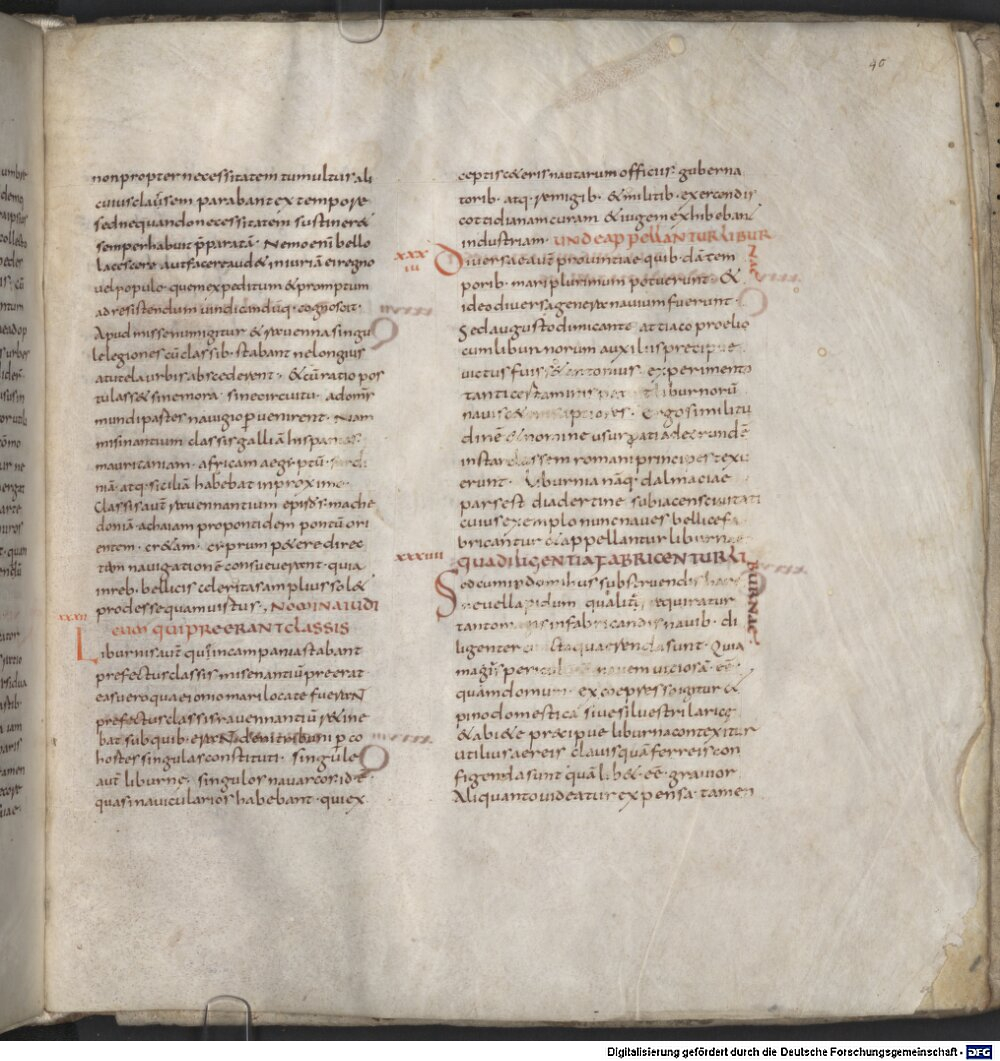 40
non propter necessitatem tumultus ali
cuius classem parabant ex tempore
sed ne quando necessitatem sustiner&
semper habuit pparatā. Nemo enī bello
lacescere aut facere aud& iniuriā ei regno
uel populo. quem expeditum & promptum
ad resistendum uindicandūq. cognoscit.
Apud missenum igitur & rauenna singu
le legiones cū classib. stabant ne longius
a tutela urbis abscederent. & cū ratio pos
tulass& sine mora. sine circuitu. ad omīs
mundi partes nauigio puenirent. Nam
misinantium classis galliā hispanias
mauritaniam. africam aegyptū.
niā. atq. siciliā habebat in proximo.
Classis aūt rauennantium epiros. mache
doniā. achaiam propontidem pontū ori
entem. cr&am. cyprum p&ere direc
tam nauigationē consueuerant. quia
in reb. bellicis celeritas amplius sol&
prodesse quam uistus. NOMINA IUDI
XXXII
cum qui preerant classis
Liburnis aūt que in campania stabant
prefectus classis misenantiū preerat
eas uero quae ionio mari locate fuerant
prefectus classis rauennantiū r&ine
bat sub quib. erant deni tribuni p co
hortes singulas constituti. singule
aūt liburnę. singulos nauarcos id ē
quasi nauicularios habebant. qui ex
ceptis c&eris nautarum officiis. guberna
torib. atq. remigib. & militib. exercendis
cottidianam curam & iugem exhibebant
industriam. UNDE APPELLANTUR LIBUR
NAE
XXXIII
Diuersae aūt prouinciae quib.dā tem
porib. mari plurimum potuerunt. &
ideo diuersa genera nauium fuerunt.
Sed augusto dimicante attiaco proelio
cum liburnorum auxiliis precipue
uictus fuiss& antonius. experimento
tanti certaminis liburnorū
naues
dinē & nomine usurpati ad earundē
instar classem romani principes texu
erunt. Liburnia nāq. dalmaciae
pars est diadertine subiacens ciuitati
cuius exemplo nunc naues bellice fa
bricantur & appellantur liburnae
XXXIIII
QUA DILIGENTIA FABRICENTUR LI
BURNAE
Sed cum in domibus substruendis
uel lapidum qualitas requiratur
tanto magis in fabricandis nauib. di
ligenter cuncta quaerenda sunt. Quia
magis nauem uiciosā. eē.
quam domum. ex coepresso igitur &
pino domestica siue siluestri larice
& abi&e precipue liburna contexitur
utilius aereis clauis quā ferreis con
figenda sunt quālib& eē. grauior
Aliquanto uideatur expensa. tamen
Digitalisierung gefördert durch die Deutsche Forschungsgemeinschaft - DFG